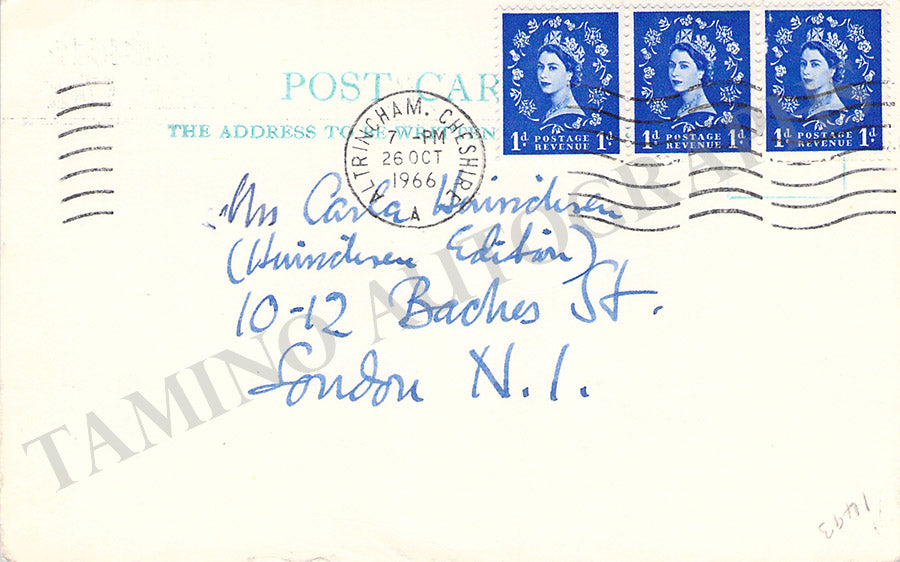 POST CAR
THE ADDRESS TO BE WRITTEN
1d POSTAGE REVENUE 1d
1d POSTAGE REVENUE 1d
1d POSTAGE REVENUE 1d
ALTRINCHAM. CHESHIRE
7 - PM
26 OCT
1966
A
Mrs Carla Hinrichsen
(Hinrichsen Edition)
10-12 Baches St.
London N.1.
TAMINO AUTOGRAPHS